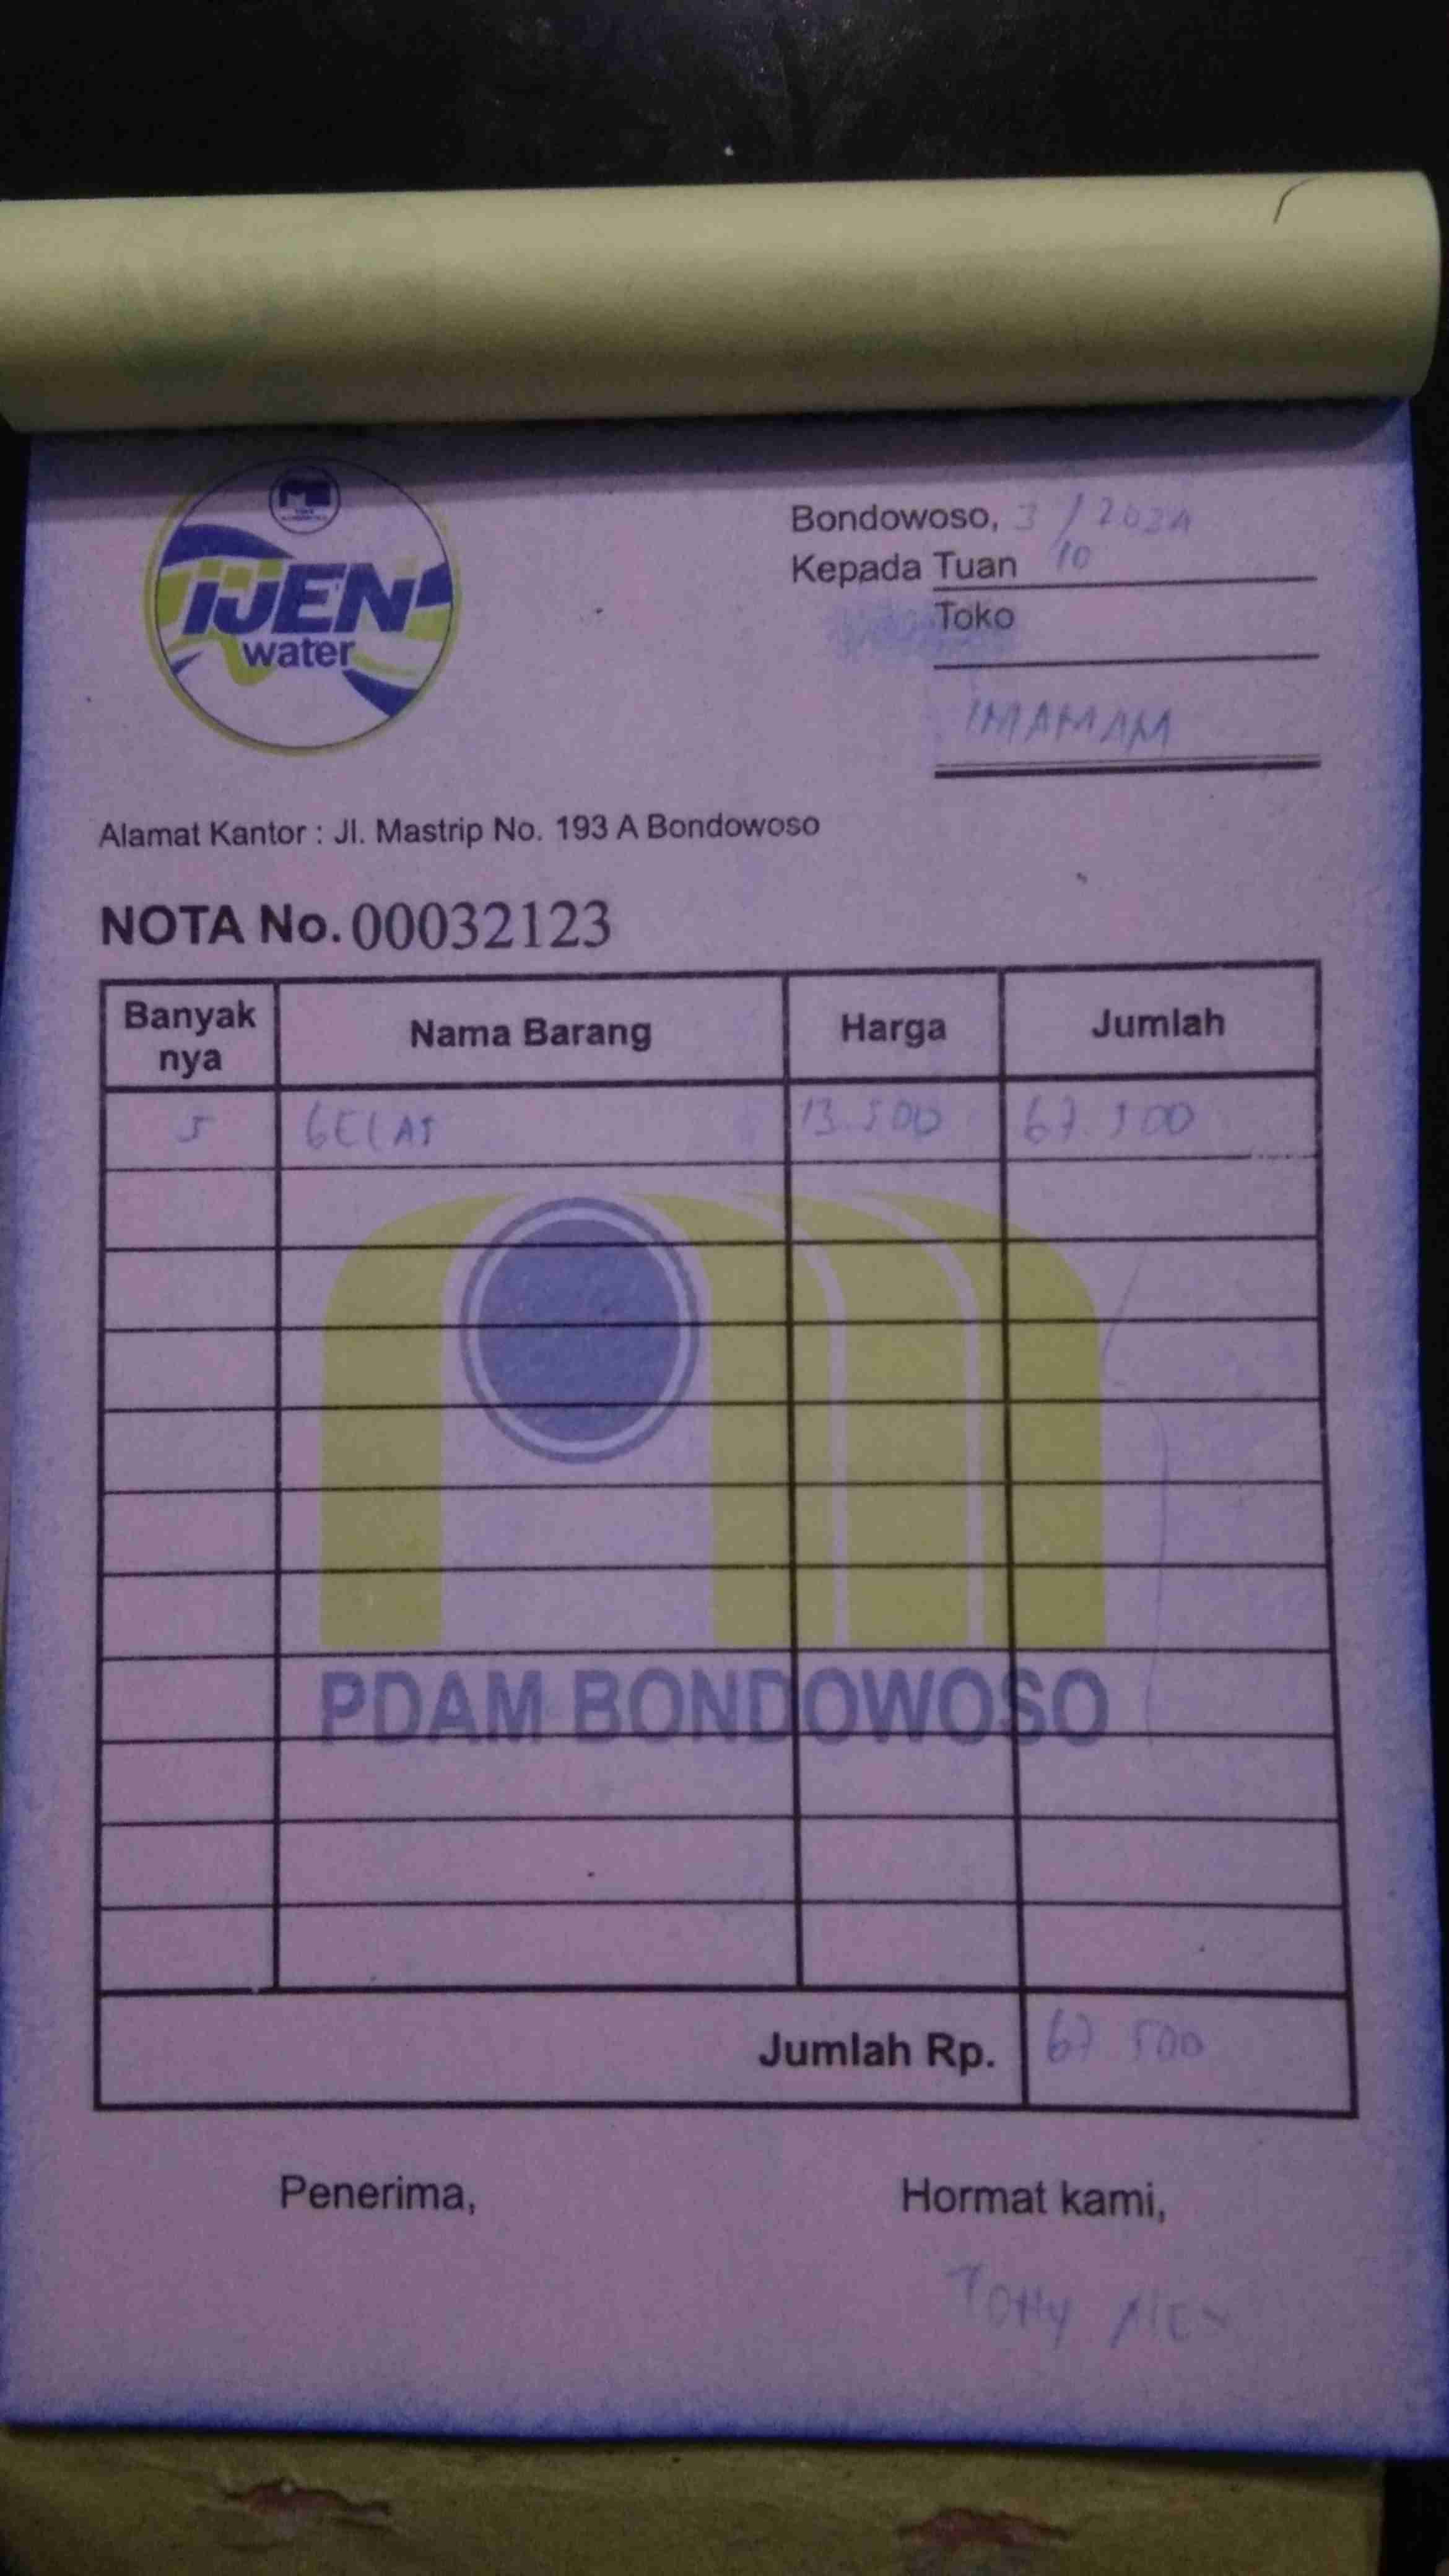 IJEN
water
Bondowoso, 3/10 2024
Kepada Tuan
Toko
IMAMAM
Alamat Kantor : Jl. Mastrip No. 193 A Bondowoso
NOTA No. 00032123
Banyak nya Nama Barang Harga Jumlah
5 GELAS 13.500 67.500
PDAM BONDOWOSO
Jumlah Rp. 67.500
Penerima, Hormat kami,